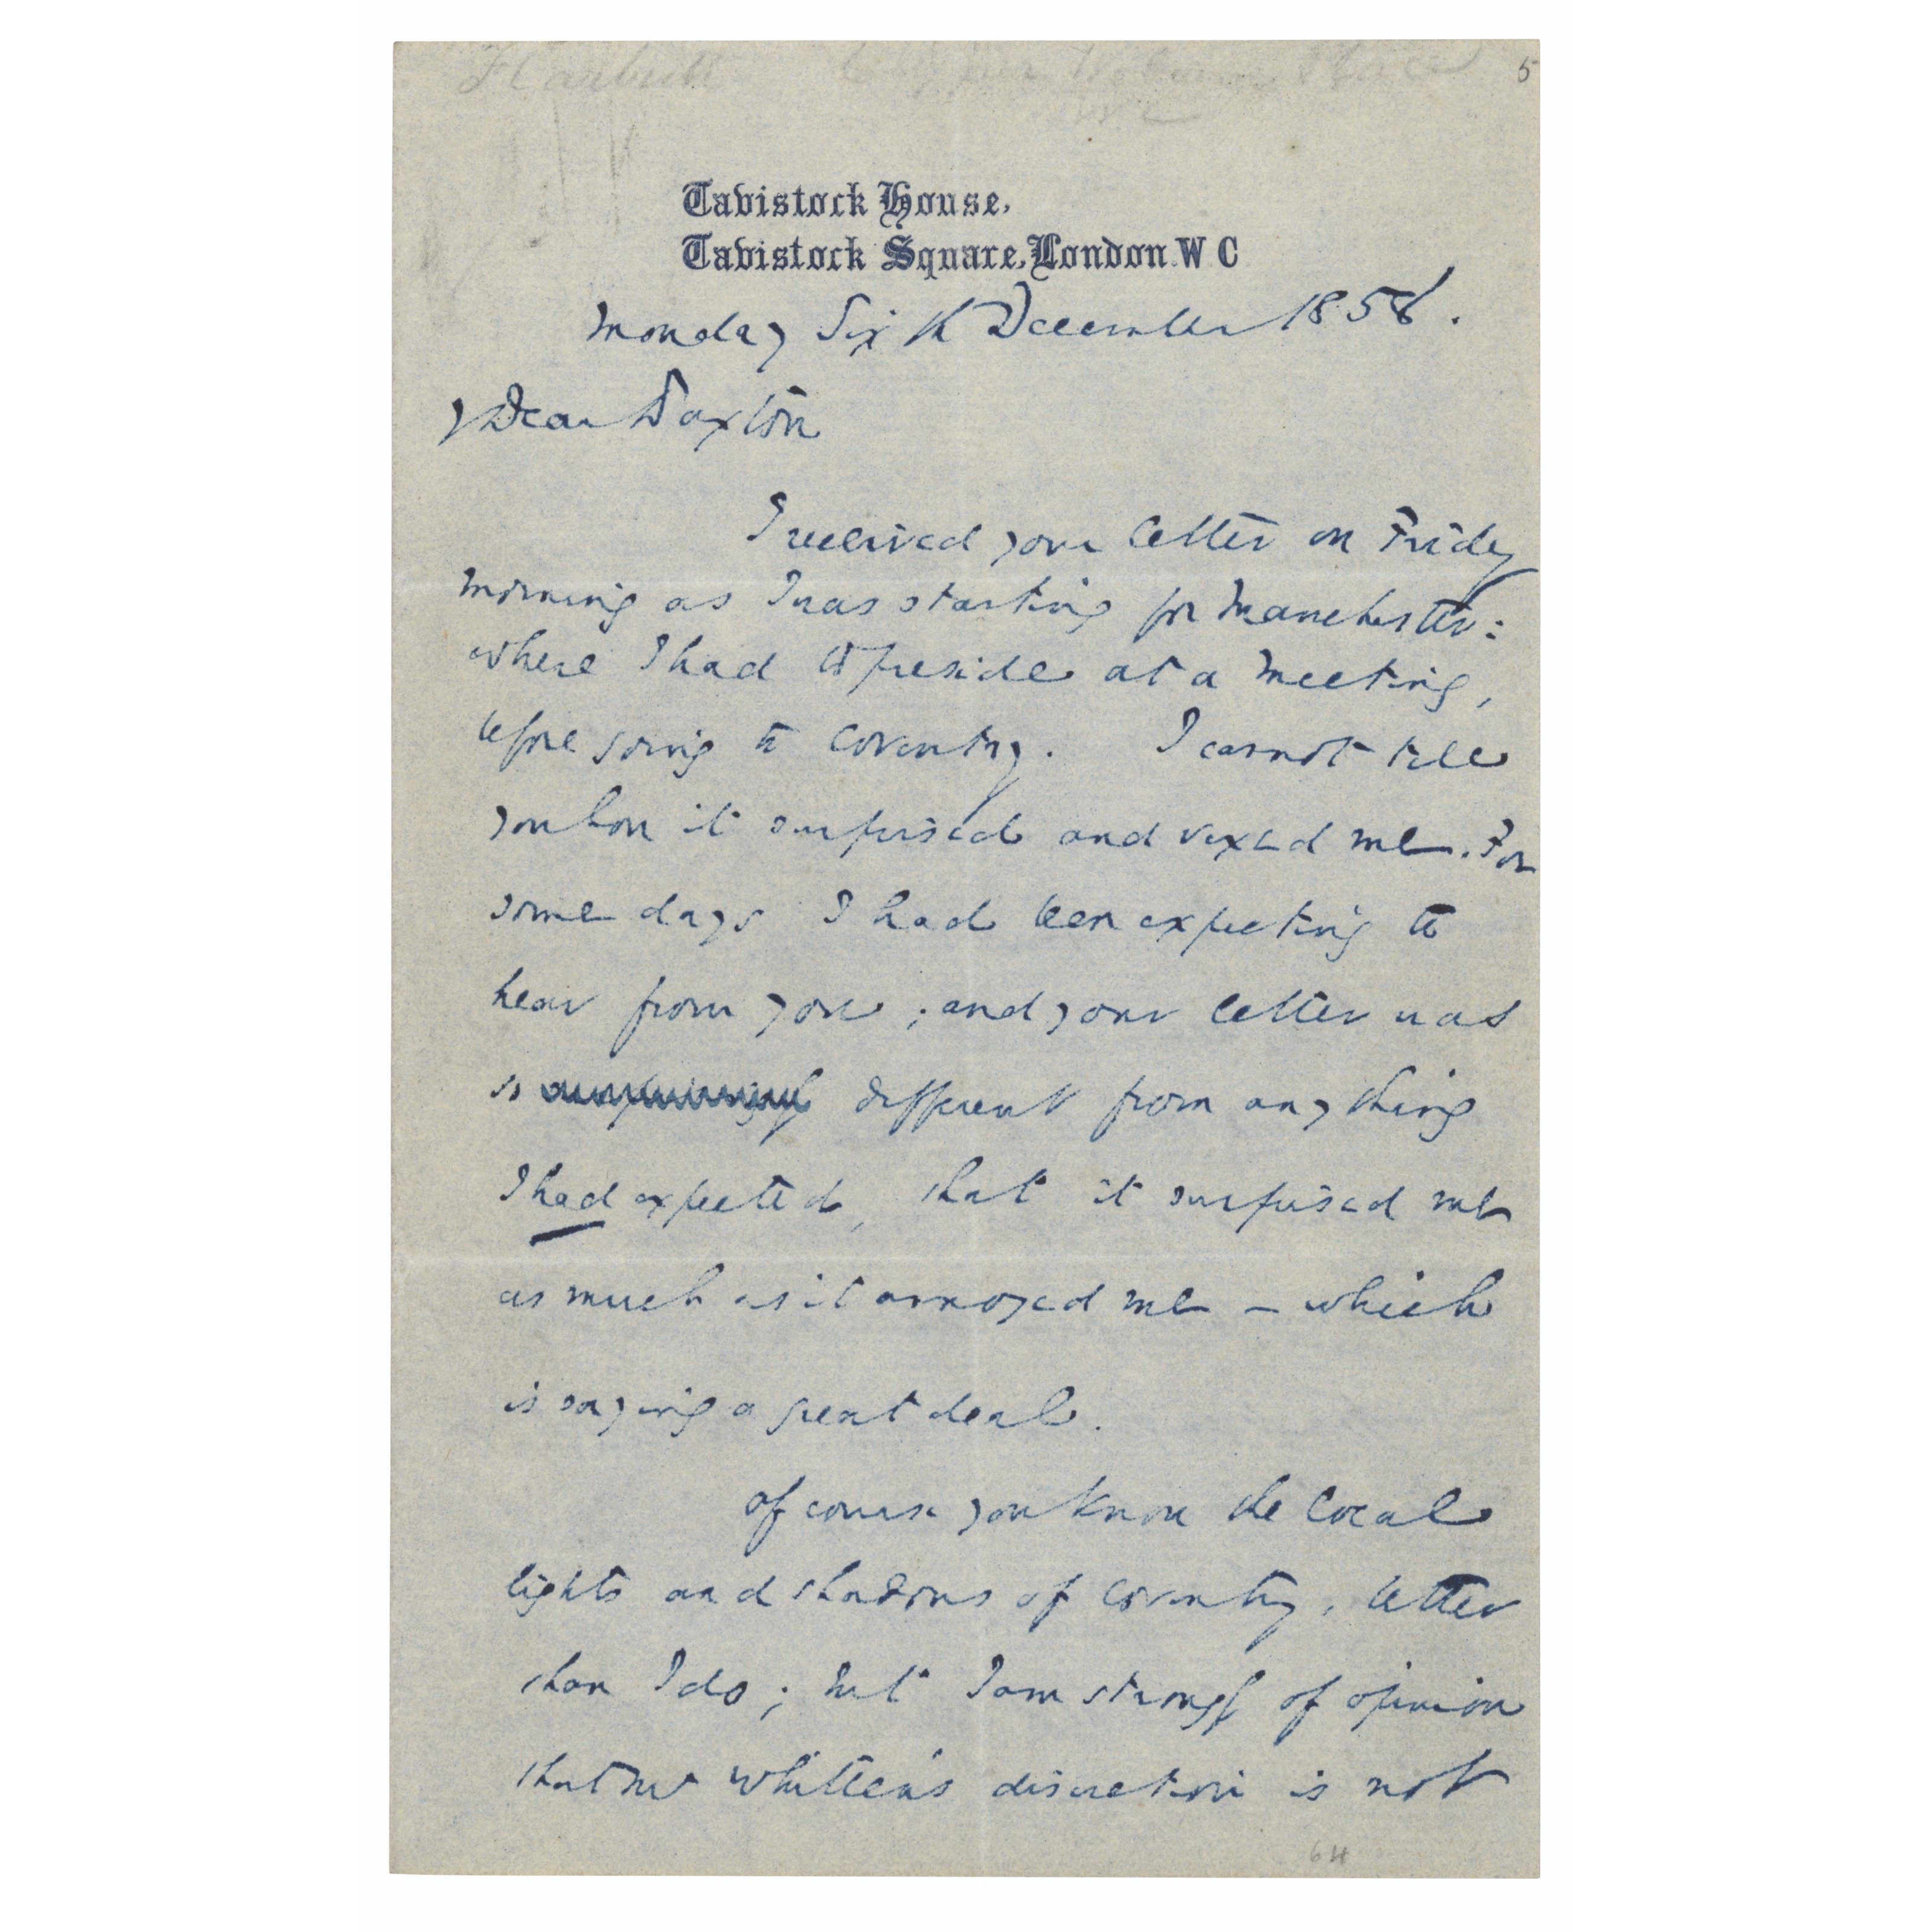 5
Tavistock House,
Tavistock Square, London. W C
Monday Sixth December 1858.
My Dear Paxton
I received your letter on Friday
morning as I was starting for Manchester:
where I had to preside at a meeting,
before going to Coventry. I cannot tell
you how it surprised and vexed me. For
some days I had been expecting to
hear from you; and your letter was
so different from anything
I had expected, that it surprised me
as much as it annoyed me – which
is saying a great deal.
Of course you know the local
lights and shadows of Coventry, better
than I do; but I am strongly of opinion
that Mr discretion is not
64